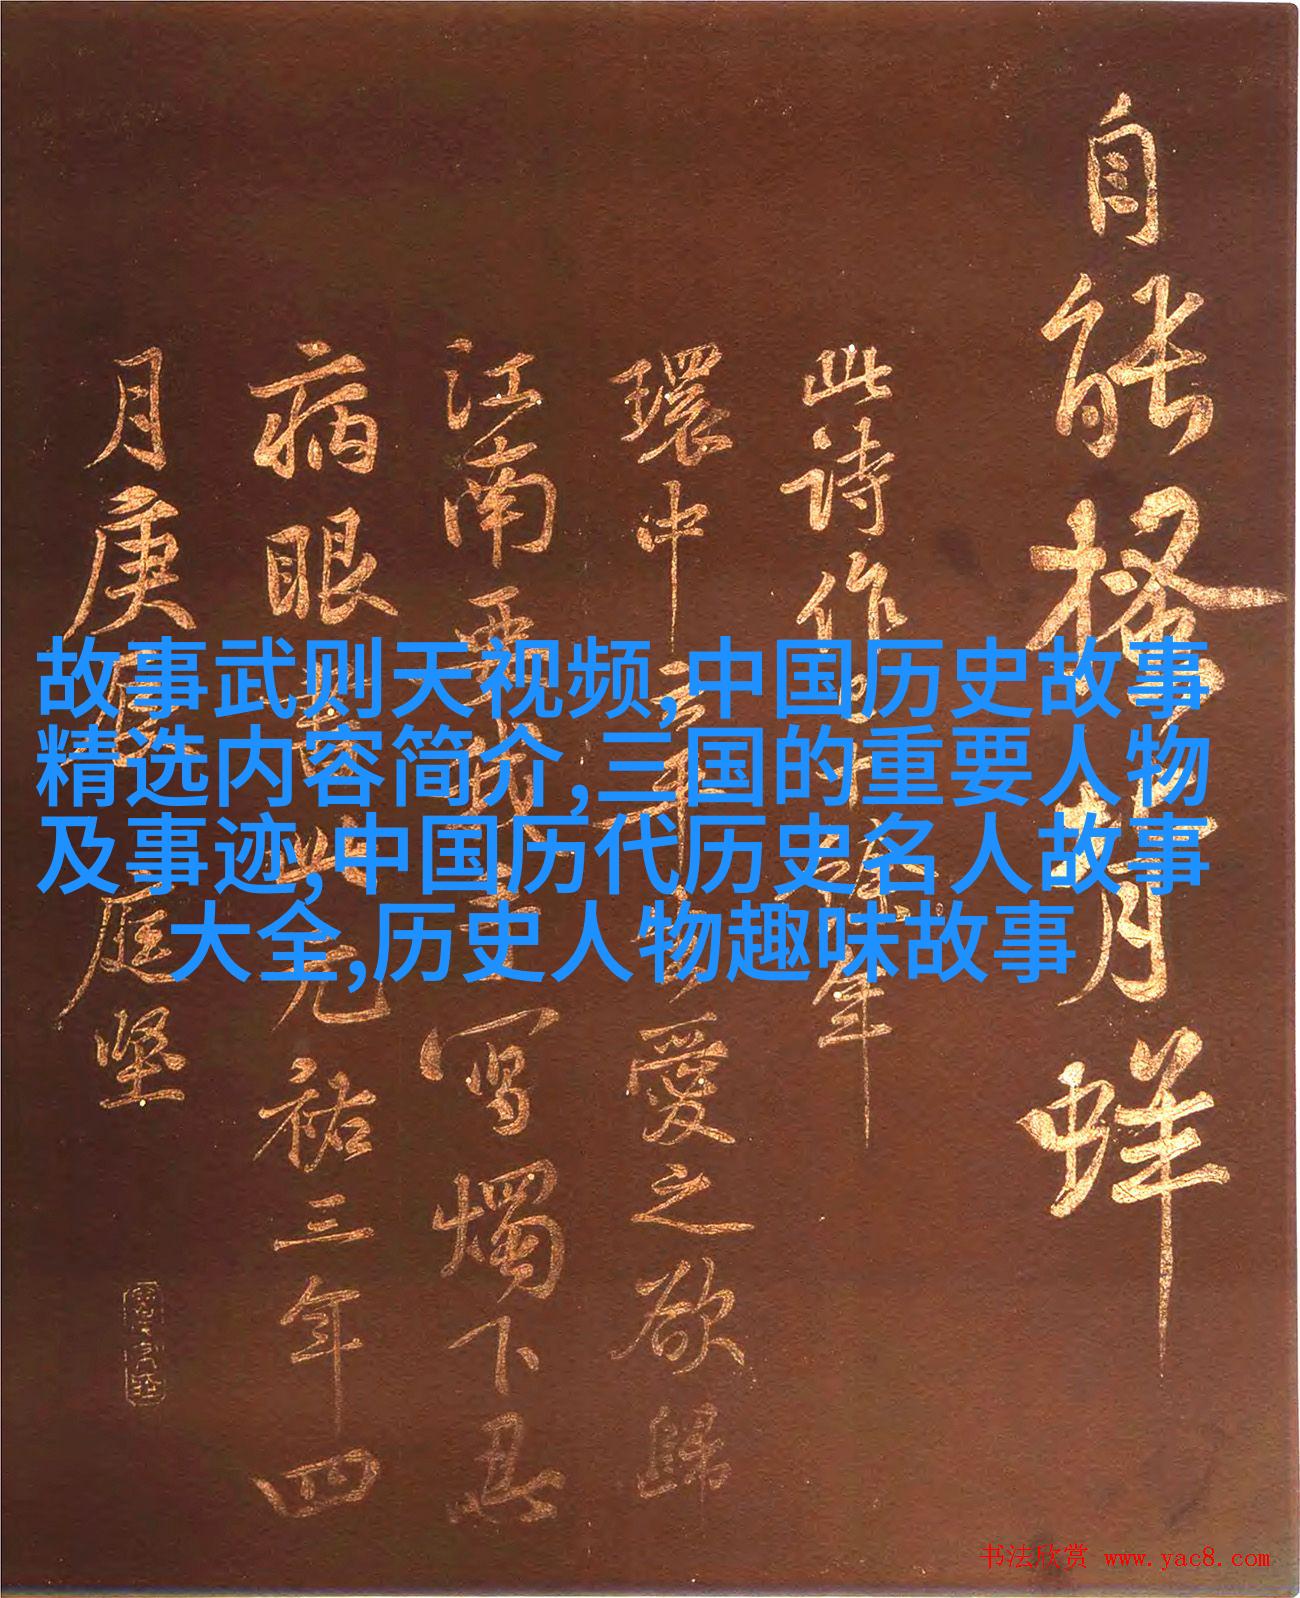 自能搔背蛘
此诗作 年
環中 愛之欲歸
江南 寫燭下
病眼 元祐三年四
月庚 庭堅
故事武则天视频,中国历史故事
精选内容简介,三国的重要人物
及事迹,中国历代历史名人故事
大全,历史人物趣味故事
书法欣赏 www.yac8.com